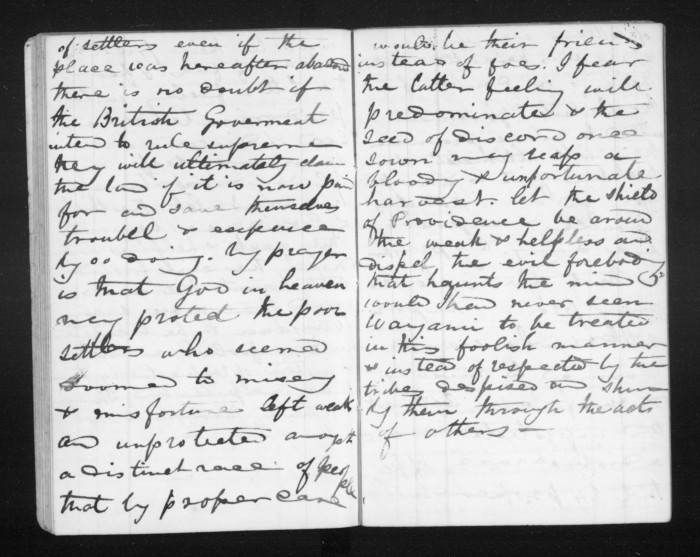 of settlers even if the
place was hereafter aband
there is no doubt if
the British Goverment
inten to rule supreme
they will ultimately claim
the lan if it is now pai
for an save themselves
trouble & expence
by so doing. My prayer
is that God in heaven
may proted the poor
settlers who seemed
doomed to misery
& misfortune left weak
an unprotected amongst
a distinct race of people
that by proper care
would be their friends
instead of foes. I fear
the latter feeling will
predominate & the
seed of discord once
sown may reap a
bloody & unfortunate
harvest. let the shield
of Providence be aroun
the weak & helpless an
dispel the evil forebodin
that haunts the min
would I had never seen
to be treated
in this foolish manner
& instead of respected by the
tribe despised an shun
by them through the acts
of others —